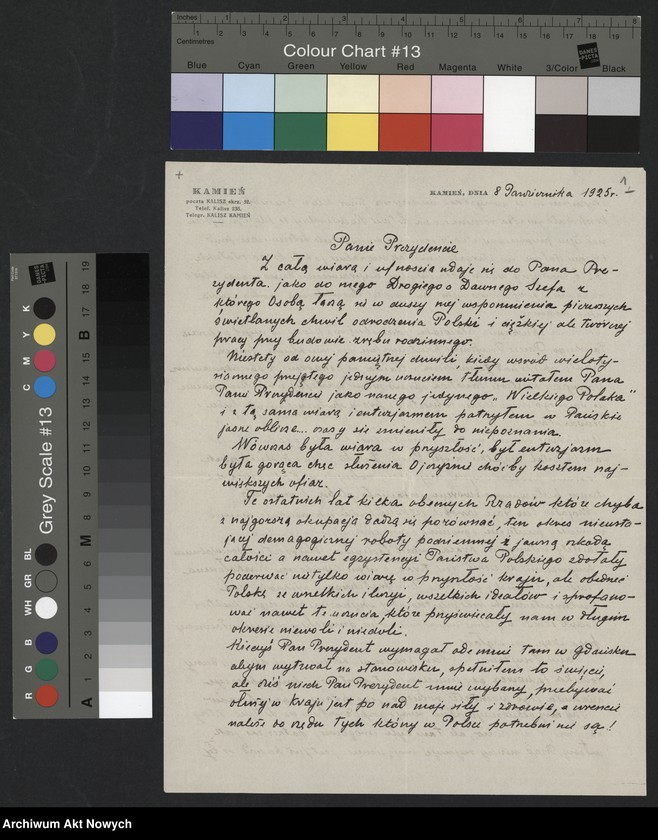 Inches 1 2 3 4 5 6 7 8
Centimetres 1 2 3 4 5 6 7 8 9 10 11 12 13 14 15 16 17 18 19
Colour Chart #13
Blue Cyan Green Yellow Red Magenta White 3/Color Black
DANES PICTA
KAMIEŃ
poczta KALISZ skrz. 32.
Telef. Kalisz
Telegr. KALISZ KAMIEŃ
KAMIEŃ, DNIA 8 Października 1925r.
1
Panie Prezydencie
Z całą wiarą i ufnością udaję się do Pana Pre-
zydenta jako do mego Drogiego a Dawnego Szefa z
którego Osobą łączą się w duszy mej wspomnienia pierwszych
świetlanych chwil odrodzenia Polski i ciężkiej ale twórczej
pracy przy budowie zrębu rodzinnego.
Niestety od owej pamiętnej chwili, kiedy wśród wieloty-
siącznego przejętego jednym uczuciem tłumu witałem Pana
Panie Prezydencie jako naszego jedynego „Wielkiego Polaka"
i z tą samą wiarą i entuzjazmem patrzyłem w Pańskie
jasne oblicze... czasy się zmieniły do niepoznania.
Wówczas była wiara w przyszłość, był entuzjazm
była gorąca chęć służenia Ojczyźnie choćby kosztem naj-
większych ofiar.
Te ostatnich lat kilka obecnych Rządów które chyba
z najgorszą okupacją dadzą się porównać, ten okres nieusta-
jącej demagogicznej roboty podziemnej z jawną szkodą
całości a nawet egzystencji Państwa Polskiego zdołały
poderwać nie tylko wiarę w przyszłość kraju, ale obedrzeć
Polskę ze wszelkich iluzji, wszelkich ideałów i sprofano-
wać nawet te uczucia, które przyświecały nam w długim
okresie niewoli i niedoli.
Kiedyś Pan Prezydent wymagał ode mnie tam w Gdańsku
abym wytrwał na stanowisku, spełniłem to święcie,
ale dziś niech Pan Prezydent mnie wybaczy, przebywać
dłużej w kraju jest po nad moje siły i zdrowie, a wreszcie
należę do rzędu tych którzy w Polsce potrzebni nie są!
Grey Scale #13
R G B WH GR BL C M Y K
A 1 2 3 4 5 6 M 8 9 10 11 12 13 14 15 16 B 17 18 19
DANES PICTA
Archiwum Akt Nowych